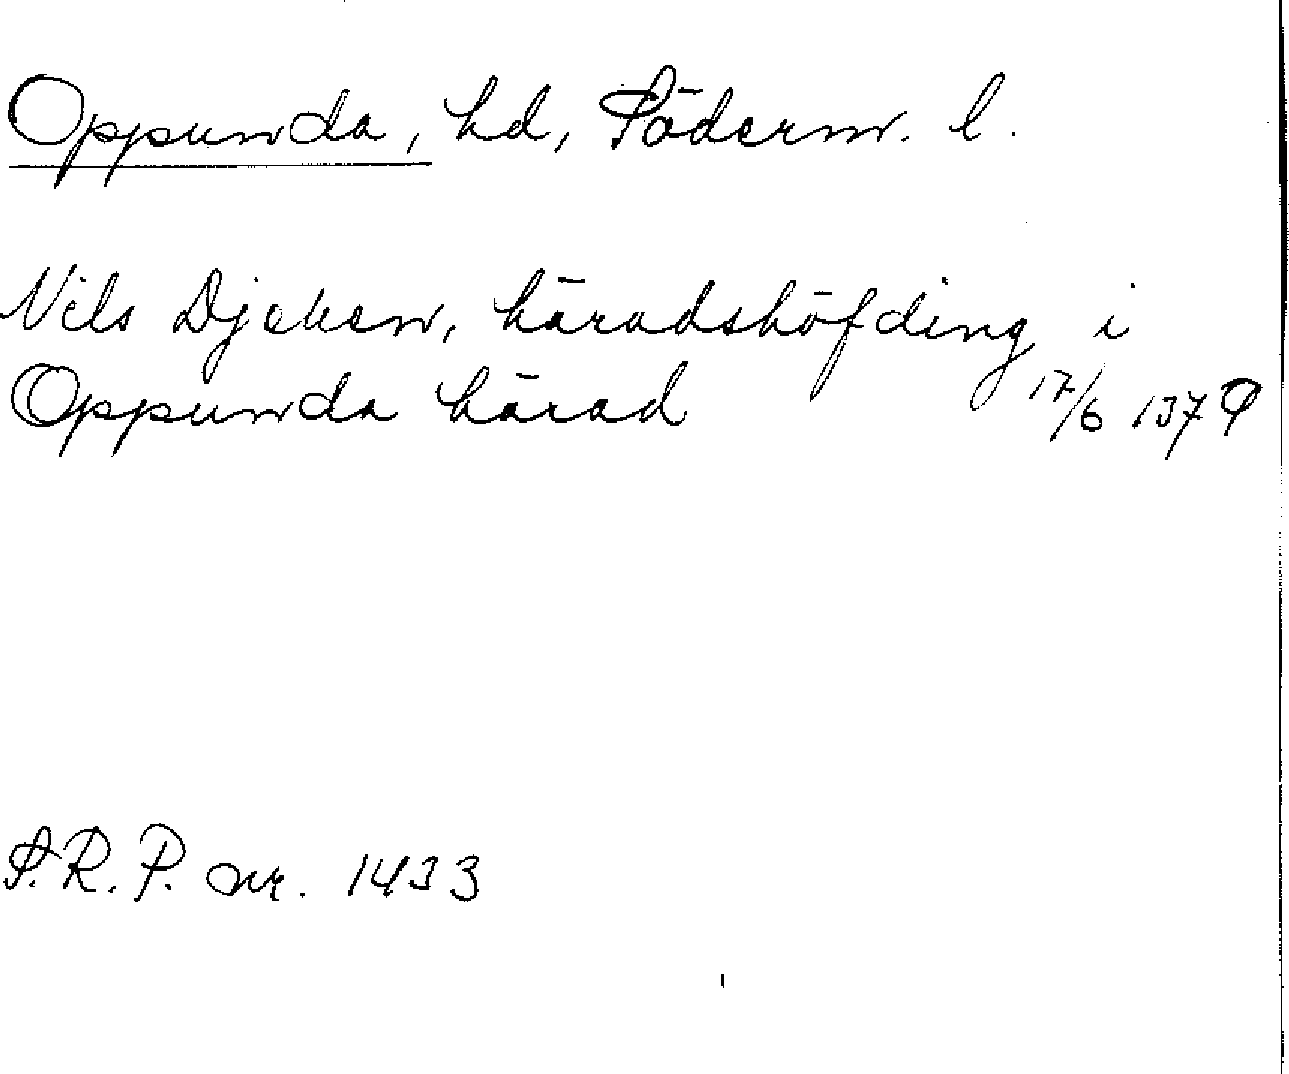 Oppunda, hd, Söderm. l.
Nils Djeken, häradshöfding i
Oppunda härad 17/6 1379
S.R.P. nr. 1433